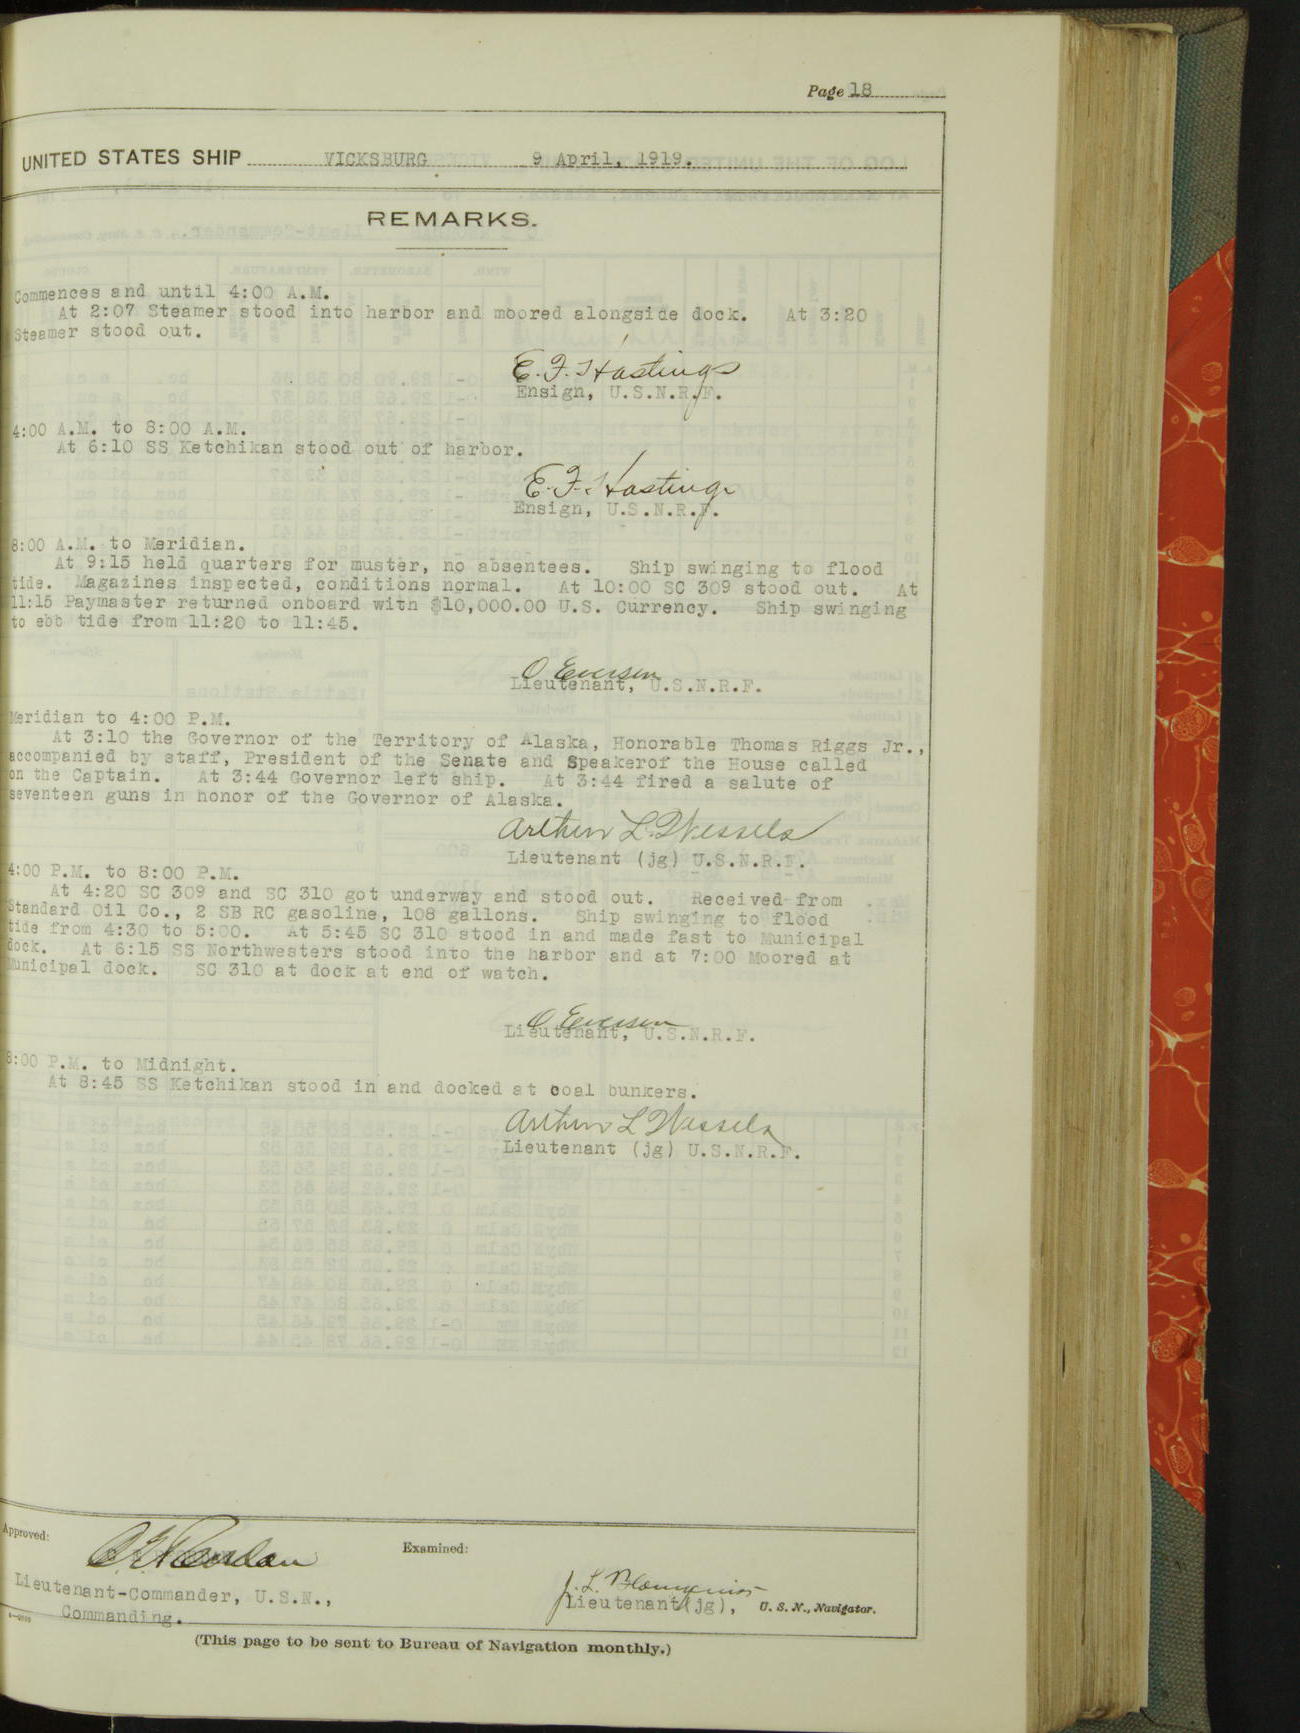 Page 18
UNITED STATES SHIP VICKSBURG 9 April, 1919.
REMARKS.
Commences and until 4:00 A.M.
At 2:07 Steamer stood into harbor and moored alongside dock. At 3:20
Steamer stood out.
E. F. Hastings
Ensign, U.S.N.R.F.
4:00 A.M. to 8:00 A.M.
At 6:10 SS Ketchikan stood out of harbor.
E. F. Hastings
Ensign, U.S.N.R.F.
8:00 A.M. to Meridian.
At 9:15 held quarters for muster, no absentees. Ship swinging to flood
tide. Magazines inspected, conditions normal. At 10:00 SC 309 stood out. At
11:15 Paymaster returned onboard with $10,000.00 U.S. Currency. Ship swinging
to ebb tide from 11:20 to 11:45.
O Evensen
Lieutenant, U.S.N.R.F.
Meridian to 4:00 P.M.
At 3:10 the Governor of the Territory of Alaska, Honorable Thomas Riggs Jr.,
accompanied by staff, President of the Senate and Speakerof the House called
on the Captain. At 3:44 Governor left ship. At 3:44 fired a salute of
seventeen guns in honor of the Governor of Alaska.
Arthur L. Wessels
Lieutenant (jg) U.S.N.R.F.
4:00 P.M. to 8:00 P.M.
At 4:20 SC 309 and SC 310 got underway and stood out. Received from
Standard Oil Co., 2 SB RC gasoline, 108 gallons. Ship swinging to flood
tide from 4:30 to 5:00. At 5:45 SC 310 stood in and made fast to Municipal
dock. At 6:15 SS Northwesters stood into the harbor and at 7:00 Moored at
Municipal dock. SC 310 at dock at end of watch.
O Evensen
Lieutenant, U.S.N.R.F.
8:00 P.M. to Midnight.
At 8:45 SS Ketchikan stood in and docked at coal bunkers.
Arthur L Wessels
Lieutenant (jg) U.S.N.R.F.
Approved:
Examined:
Lieutenant-Commander, U.S.N.,
Commanding.
J. L.
Lieutenant(jg), U. S. N., Navigator.
(This page to be sent to Bureau of Navigation monthly.)